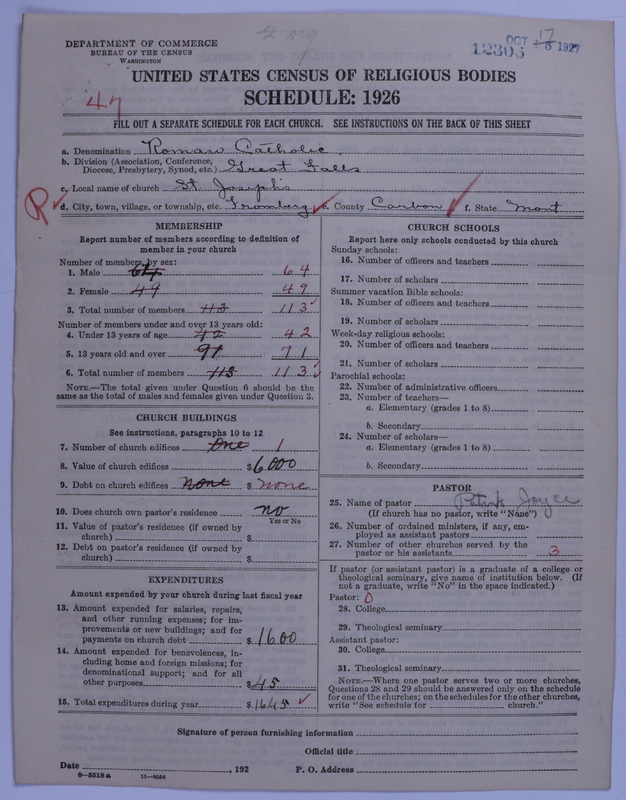 DEPARTMENT OF COMMERCE
BUREAU OF THE CENSUS
WASHINGTON
OCT 17 1927
12305
UNITED STATES CENSUS OF RELIGIOUS BODIES
SCHEDULE: 1926
47
FILL OUT A SEPARATE SCHEDULE FOR EACH CHURCH. SEE INSTRUCTIONS ON THE BACK OF THIS SHEET
a. Denomination Roman Catholic
b. Division (Association, Conference, Diocese, Presbytery, Synod, etc.) Great Falls
c. Local name of church St. Joseph's
R
d. City, town, village, or township, etc. Fromberg e. County Carbon f. State Mont
MEMBERSHIP
Report number of members according to definition of
member in your church
Number of members, by sex:
1. Male 64 64
2. Female 49 49
3. Total number of members 113 113
Number of members under and over 13 years old:
4. Under 13 years of age 42 42
5. 13 years old and over 71 71
6. Total number of members 113 113
NOTE.—The total given under Question 6 should be the
same as the total of males and females given under Question 3.
CHURCH BUILDINGS
See instructions, paragraphs 10 to 12
7. Number of church edifices One 1
8. Value of church edifices $6000
9. Debt on church edifices None $ none
10. Does church own pastor's residence no
Yes or No
11. Value of pastor's residence (if owned by
church) $
12. Debt on pastor's residence (if owned by
church) $
EXPENDITURES
Amount expended by your church during last fiscal year
13. Amount expended for salaries, repairs,
and other running expenses; for im-
provements or new buildings; and for
payments on church debt $1600
14. Amount expended for benevolences, in-
cluding home and foreign missions; for
denominational support; and for all
other purposes $45
15. Total expenditures during year $1645
CHURCH SCHOOLS
Report here only schools conducted by this church
Sunday schools:
16. Number of officers and teachers
17. Number of scholars
Summer vacation Bible schools:
18. Number of officers and teachers
19. Number of scholars
Week-day religious schools:
20. Number of officers and teachers
21. Number of scholars
Parochial schools:
22. Number of administrative officers
23. Number of teachers—
a. Elementary (grades 1 to 8)
b. Secondary
24. Number of scholars—
a. Elementary (grades 1 to 8)
b. Secondary
PASTOR
25. Name of pastor Patrick Joyce
(If church has no pastor, write "None")
26. Number of ordained ministers, if any, em-
ployed as assistant pastors
27. Number of other churches served by the
pastor or his assistants 3
If pastor (or assistant pastor) is a graduate of a college or
theological seminary, give name of institution below. (If
not a graduate, write "No" in the space indicated.)
Pastor: 0
28. College
29. Theological seminary
Assistant pastor:
30. College
31. Theological seminary
NOTE.—Where one pastor serves two or more churches,
Questions 28 and 29 should be answered only on the schedule
for one of the churches; on the schedules for the other churches,
write "See schedule for church."
Signature of person furnishing information
Official title
Date , 192 P. O. Address
8—5518a 11—9054